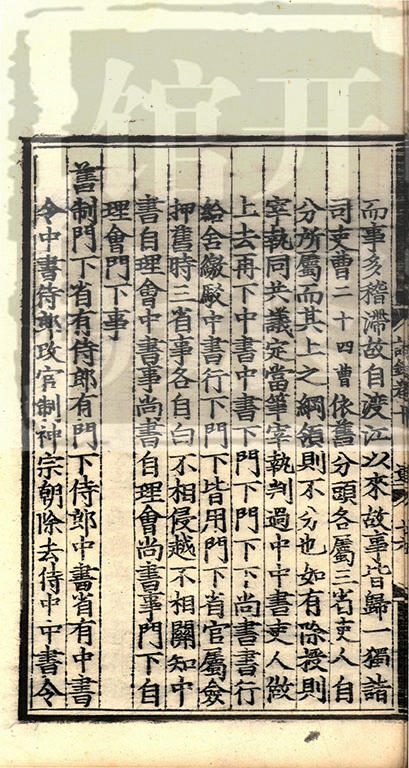 而事多稽滯故自渡江以來故事皆歸一獨諸
司吏曹二十四曹依舊分頭各屬三省吏人自
分所屬而其上之綱領則不分也如有除授則
宰執同共議定當筆宰執判過中中書吏人做
上去再下中書中書下門下門下下尚書書行
給舍繳駁中書行下門下皆用門下省官屬僉
押舊時三省事各自白不相侵越不相關知中
書自理會中書事尚書自理會尚書事門下自
理會門下事
舊制門下省有侍郎有門下侍郎中書省有中書
令中書侍郎改官制神宗朝除去侍中中書令